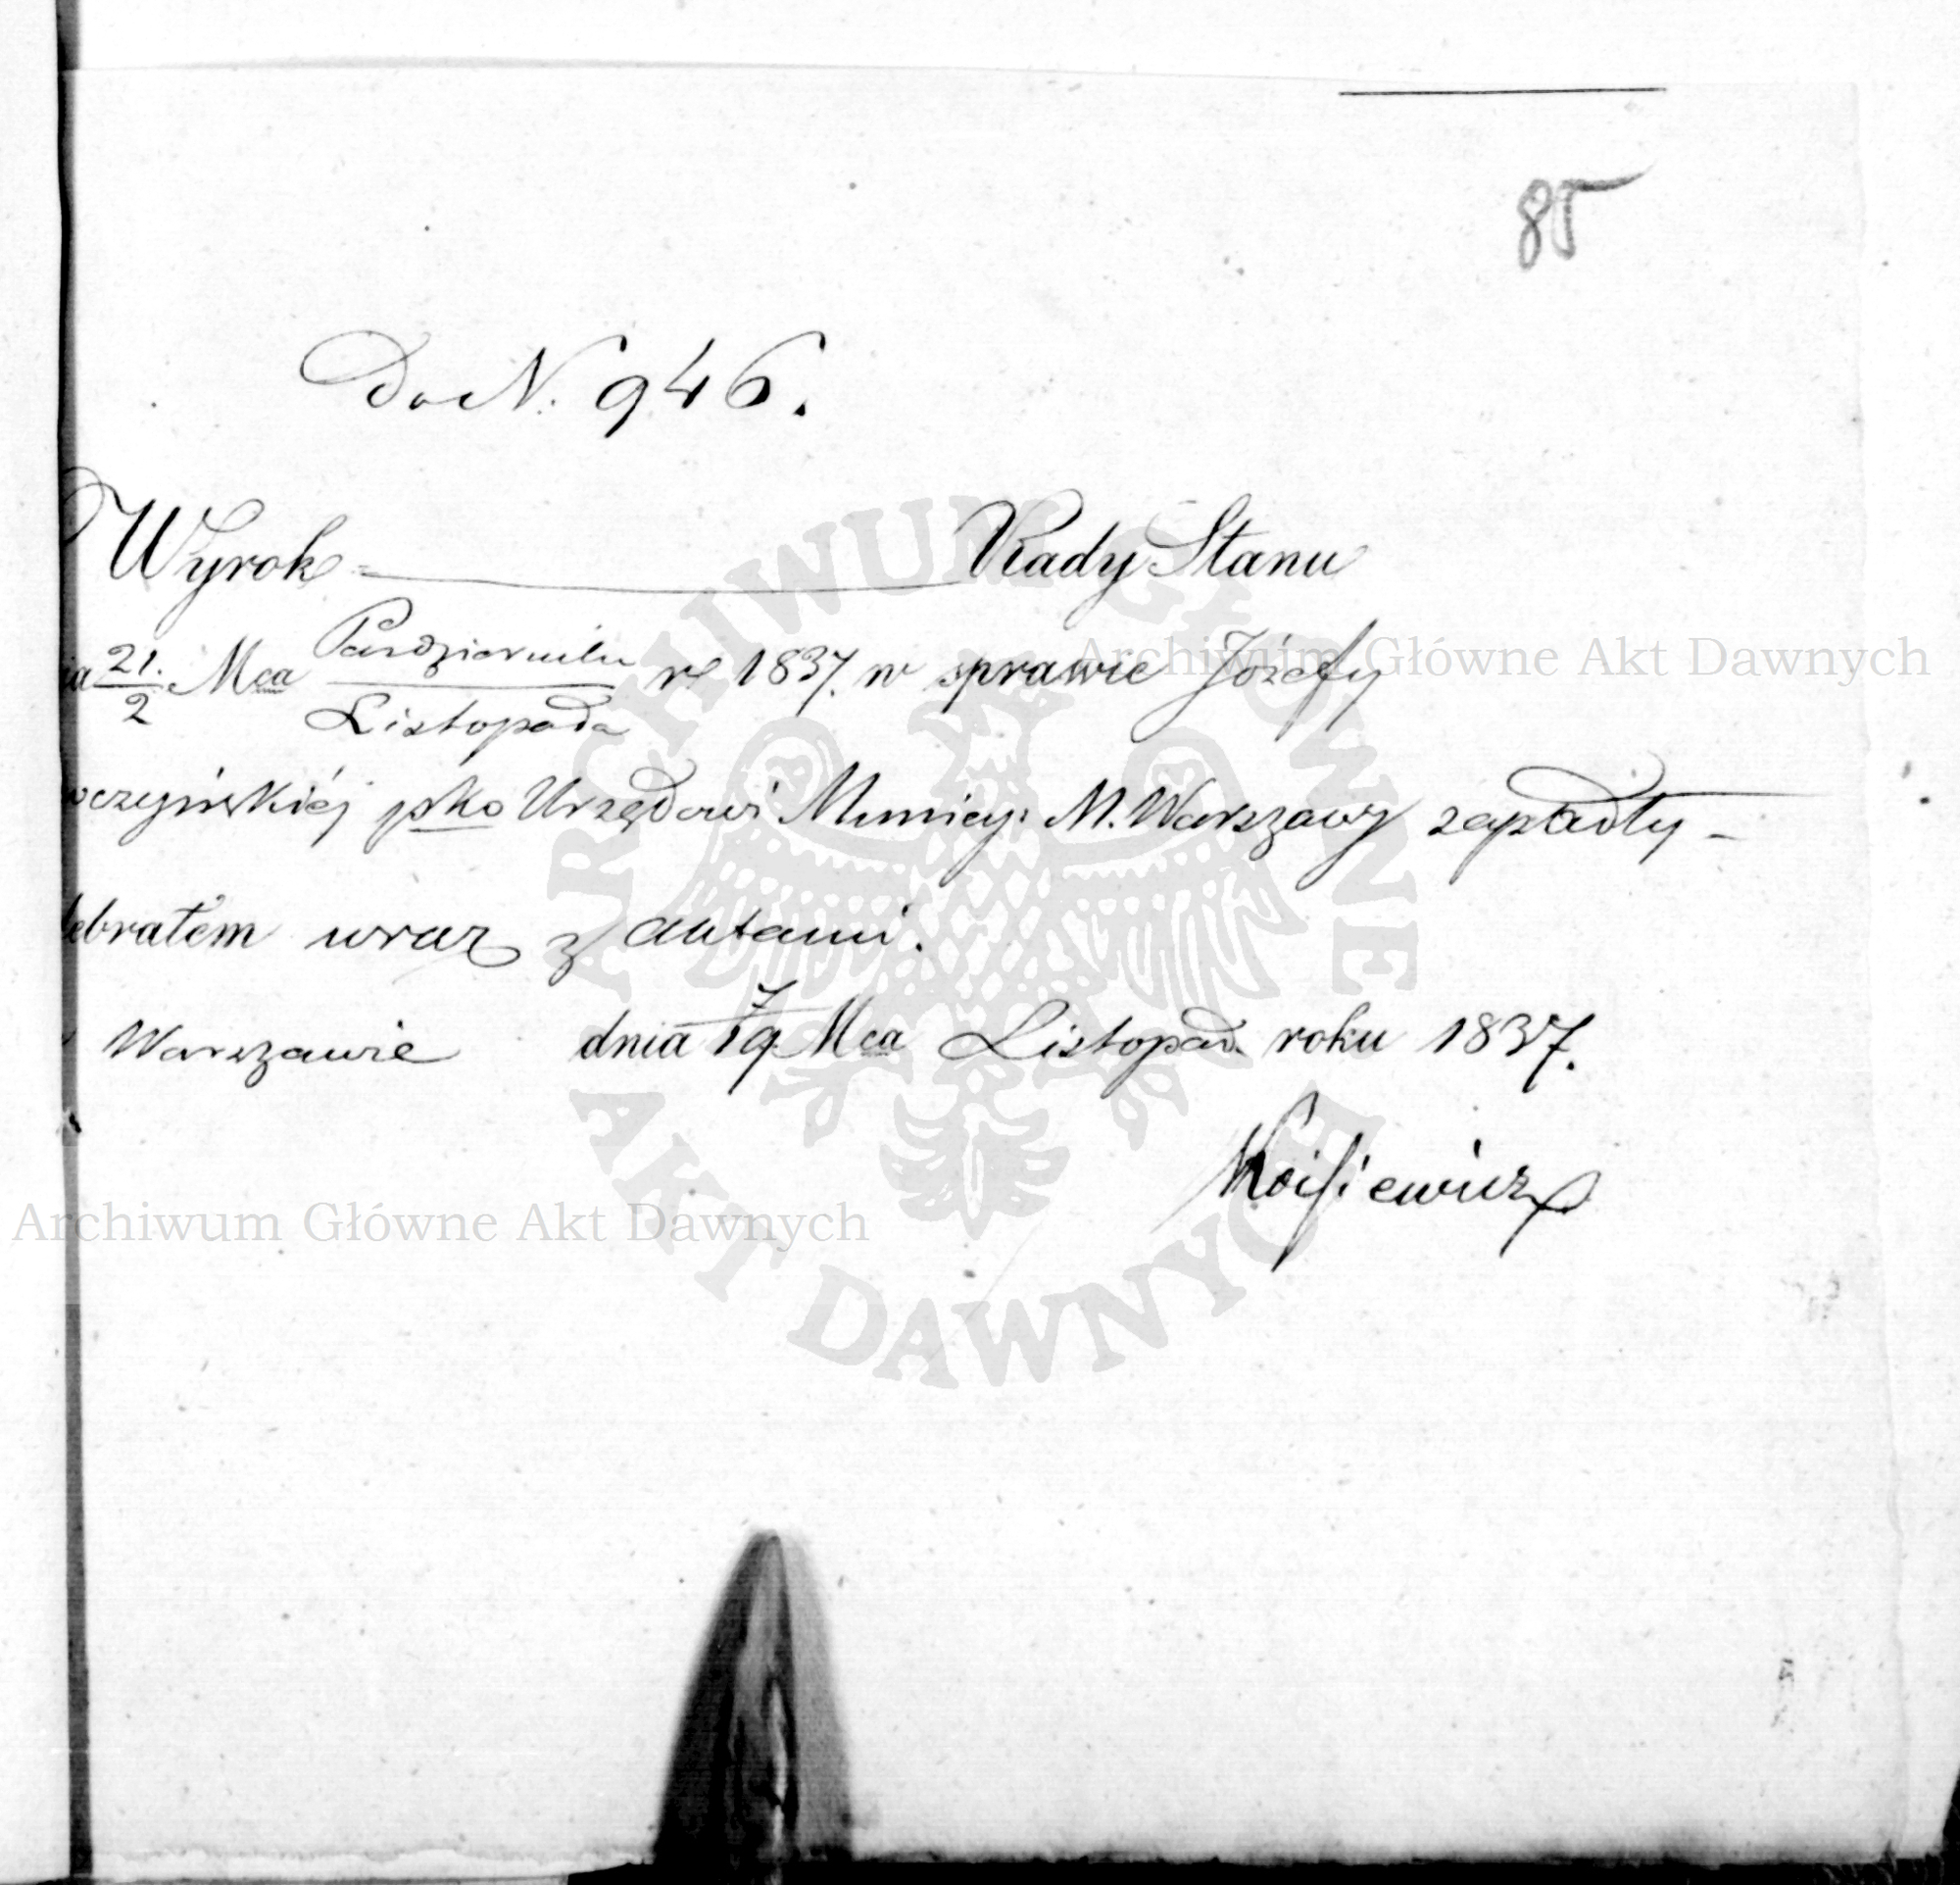 85
Do N. 946.
Wyrok Rady Stanu
ia 21./2 Mca Pazdziernika/Listopada r. 1837. w sprawie Józefy
oczyńskiéj pko Urzędowi Municy: M. Warszawy zapadły -
debrałem wraz z aktami.
Warszawie dnia 7/19 Mca Listopad. roku 1837.
ARCHIWUM GŁÓWNE AKT DAWNYCH
Archiwum Główne Akt Dawnych
Archiwum Główne Akt Dawnych